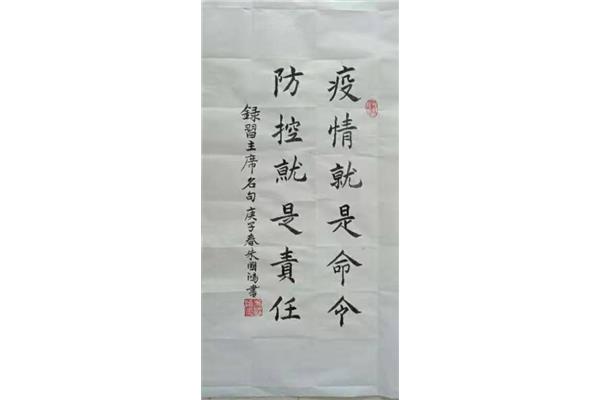 疫情就是命令
防控就是責任
録習主席名句庚子春朱國鴻書